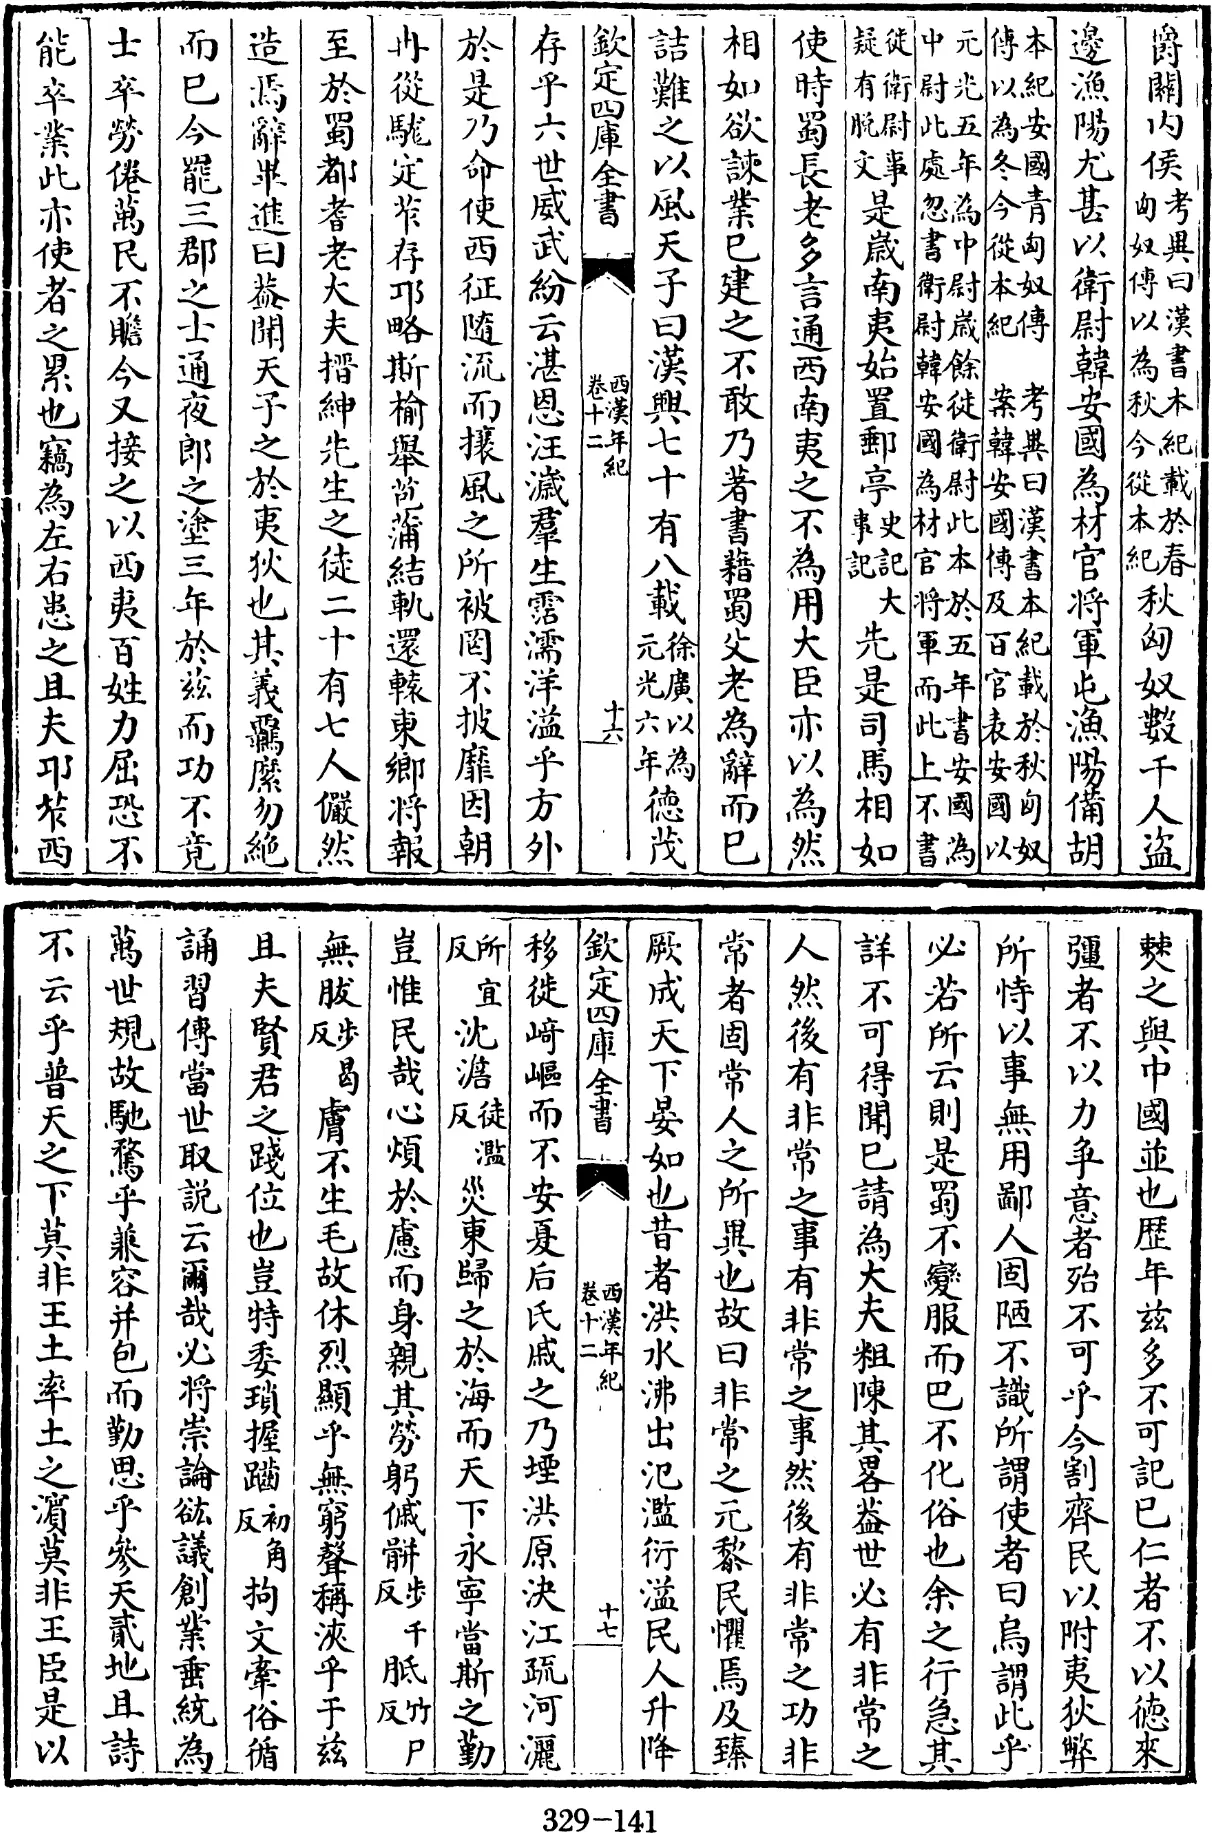 爵關内侯考異曰漢書本紀載於春匈奴傳以為秋今從本紀秋匈奴數千人盗
邊漁陽尤甚以衛尉韓安國為材官将軍屯漁陽備胡
考異曰漢書本紀載於秋匈奴傳以為冬今從本紀
本紀安國青匈奴傳　考異曰漢書本紀載於秋匈奴
傳以為冬今從本紀　案韓安國傳及百官表安國以
元光五年為中尉嵗餘徙衛尉此本於五年書安國為
中尉此處忽書衛尉韓安國為材官将軍而此上不書
徙衛尉事疑有脱文是嵗南夷始置郵亭史記大事記先是司馬相如
使時蜀長老多言通西南夷之不為用大臣亦以為然
相如欲諫業已建之不敢乃著書藉蜀父老為辭而已
詰難之以風天子曰漢興七十有八載徐廣以為元光六年德茂
欽定四庫全書　西漢年紀卷十二　十六
存乎六世威武紛云湛恩汪濊羣生霑濡洋溢乎方外
於是乃命使西征隨流而攘風之所被罔不披靡因朝
冉從駹定莋存卭略斯榆舉苞蒲結軌還轅東鄉将報
至於蜀都耆老大夫搢紳先生之徒二十有七人儼然
造焉辭畢進曰葢聞天子之於夷狄也其義羈縻勿絶
而已今罷三郡之士通夜郎之塗三年於兹而功不竟
士卒勞倦萬民不贍今又接之以西夷百姓力屈恐不
能卒業此亦使者之累也竊為左右患之且夫卭莋西
僰之與中國並也歴年兹多不可記已仁者不以徳來
彊者不以力争意者殆不可乎今割齊民以附夷狄弊
所恃以事無用鄙人固陋不識所謂使者曰烏謂此乎
必若所云則是蜀不變服而巴不化俗也余之行急其
詳不可得聞已請為大夫粗陳其畧葢世必有非常之
人然後有非常之事有非常之事然後有非常之功非
常者固常人之所異也故曰非常之元黎民懼焉及臻
厥成天下晏如也昔者洪水沸出氾濫衍溢民人升降
欽定四庫全書　西漢年紀卷十二　十七
移徙崎嶇而不安夏后氏慼之乃堙洪原決江疏河灑
所宜反沈澹徒濫反災東歸之於海而天下永寧當斯之勤
豈惟民哉心煩於慮而身親其勞躬傶骿步千反胝竹尸反
無胈步曷反膚不生毛故休烈顯乎無窮聲稱浹乎于兹
且夫賢君之踐位也豈特委瑣握齱初角反拘文牽俗循
誦習傳當世取説云爾哉必将崇論谹議創業垂統為
萬世規故馳騖乎兼容并包而勤思乎參天貳地且詩
不云乎普天之下莫非王土率土之濵莫非王臣是以
329-141